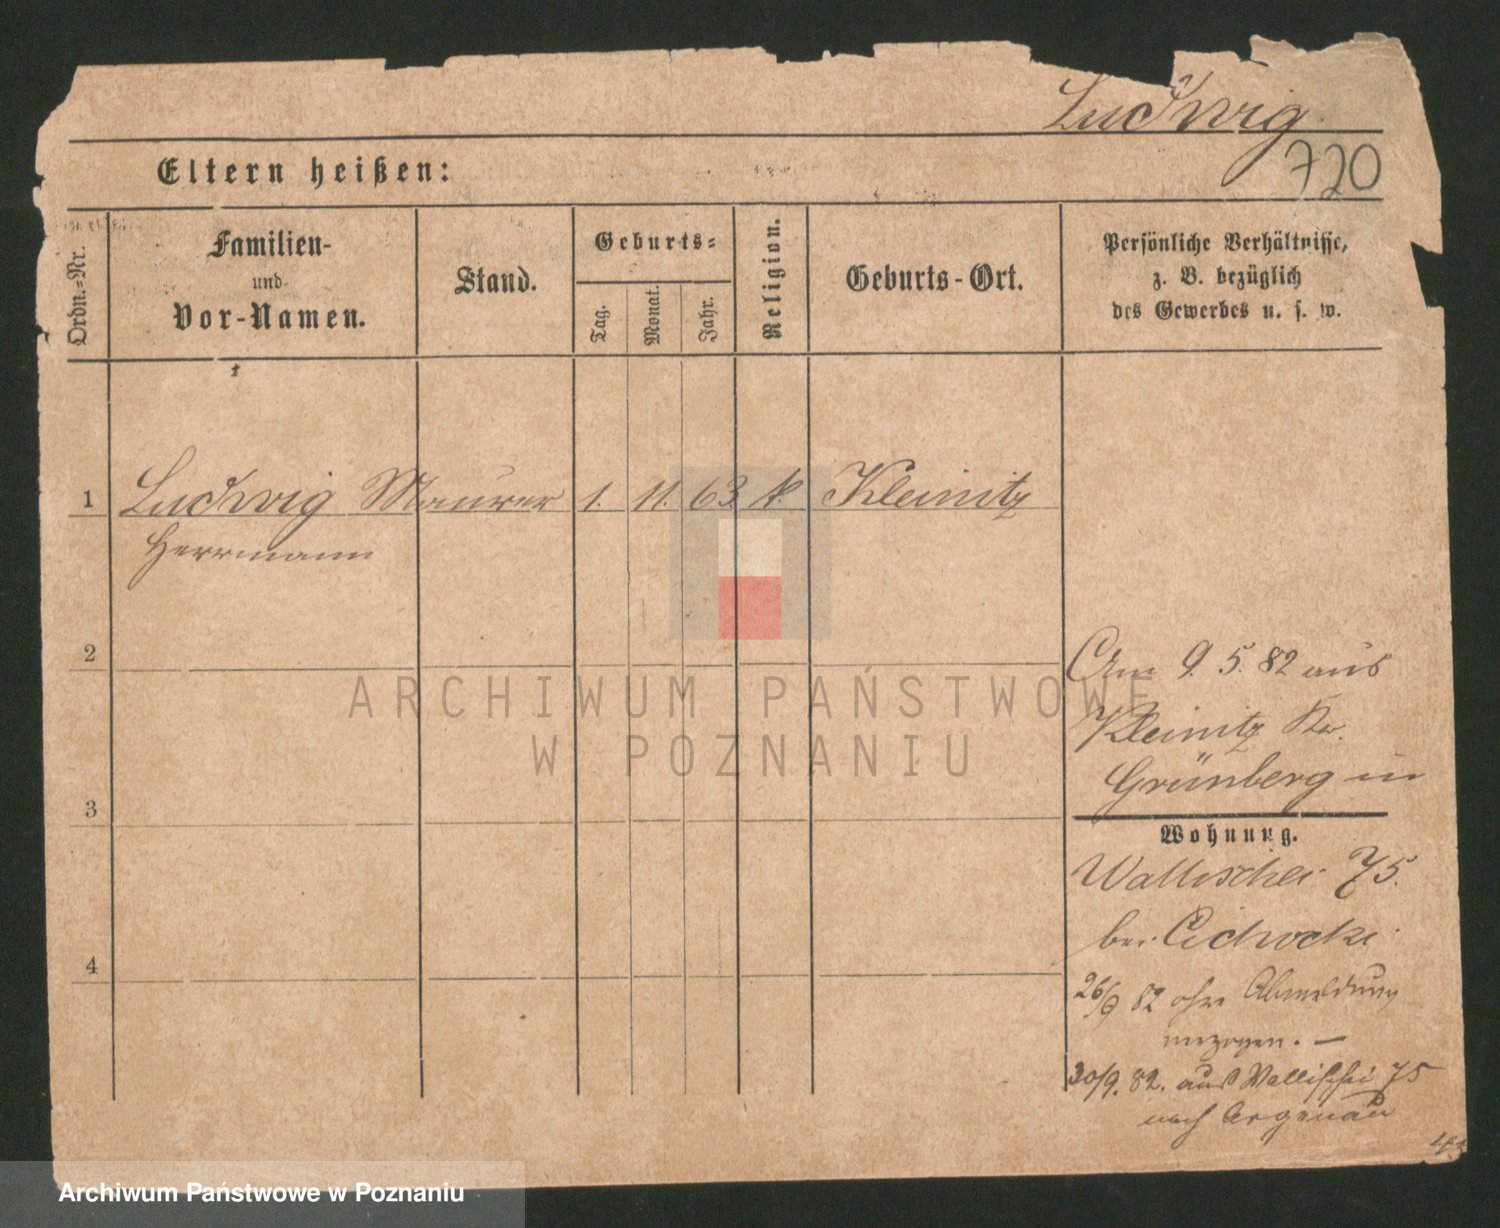 Ludwig
720
Eltern heißen:
Ordn.=Nr.
Familien-
und
Vor-Namen.
Stand.
Geburts=
Tag.
Monat.
Jahr.
Religion.
Geburts-Ort.
Persönliche Verhältnisse,
z. B. bezüglich
des Gewerbes u. s. w.
1 Ludwig Maurer 1. 11. 63 k. Kleinitz
Herrmann
2
Am 9. 5. 82 aus
Kleinitz Kr.
Grünberg in
3
Wohnung.
Wallischei 75.
bei Cichocki
4
26/9 82 ohne Abmeldung
30/9. 82. aus Wallischei 75
nach Argenau
ARCHIWUM PAŃSTWOWE
W POZNANIU
Archiwum Państwowe w Poznaniu